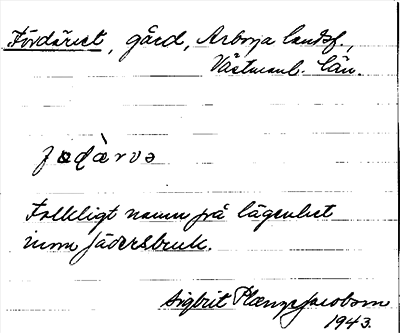 Jordärvet, gård, Arboga landsf.,
Västmanl. län.
Folkligt namn på lägenhet
inom Jädersbruk.
Sigbrit Plænge Jacobson
1943.